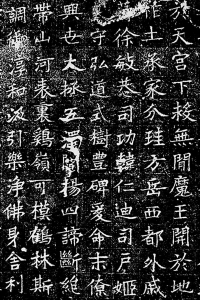 於天宮下救無間魔王開於地
作土承家分珪方岳西都外戚
徐敏恭司功韓仁迪司戶姬
守弘道式樹豐碑爰命末僚
興世大拯五濁闡揚四諦斷絕
帶山河表裏鷄嶺可模鶴林斯
調御淳和汲引樂淨佛身舍利